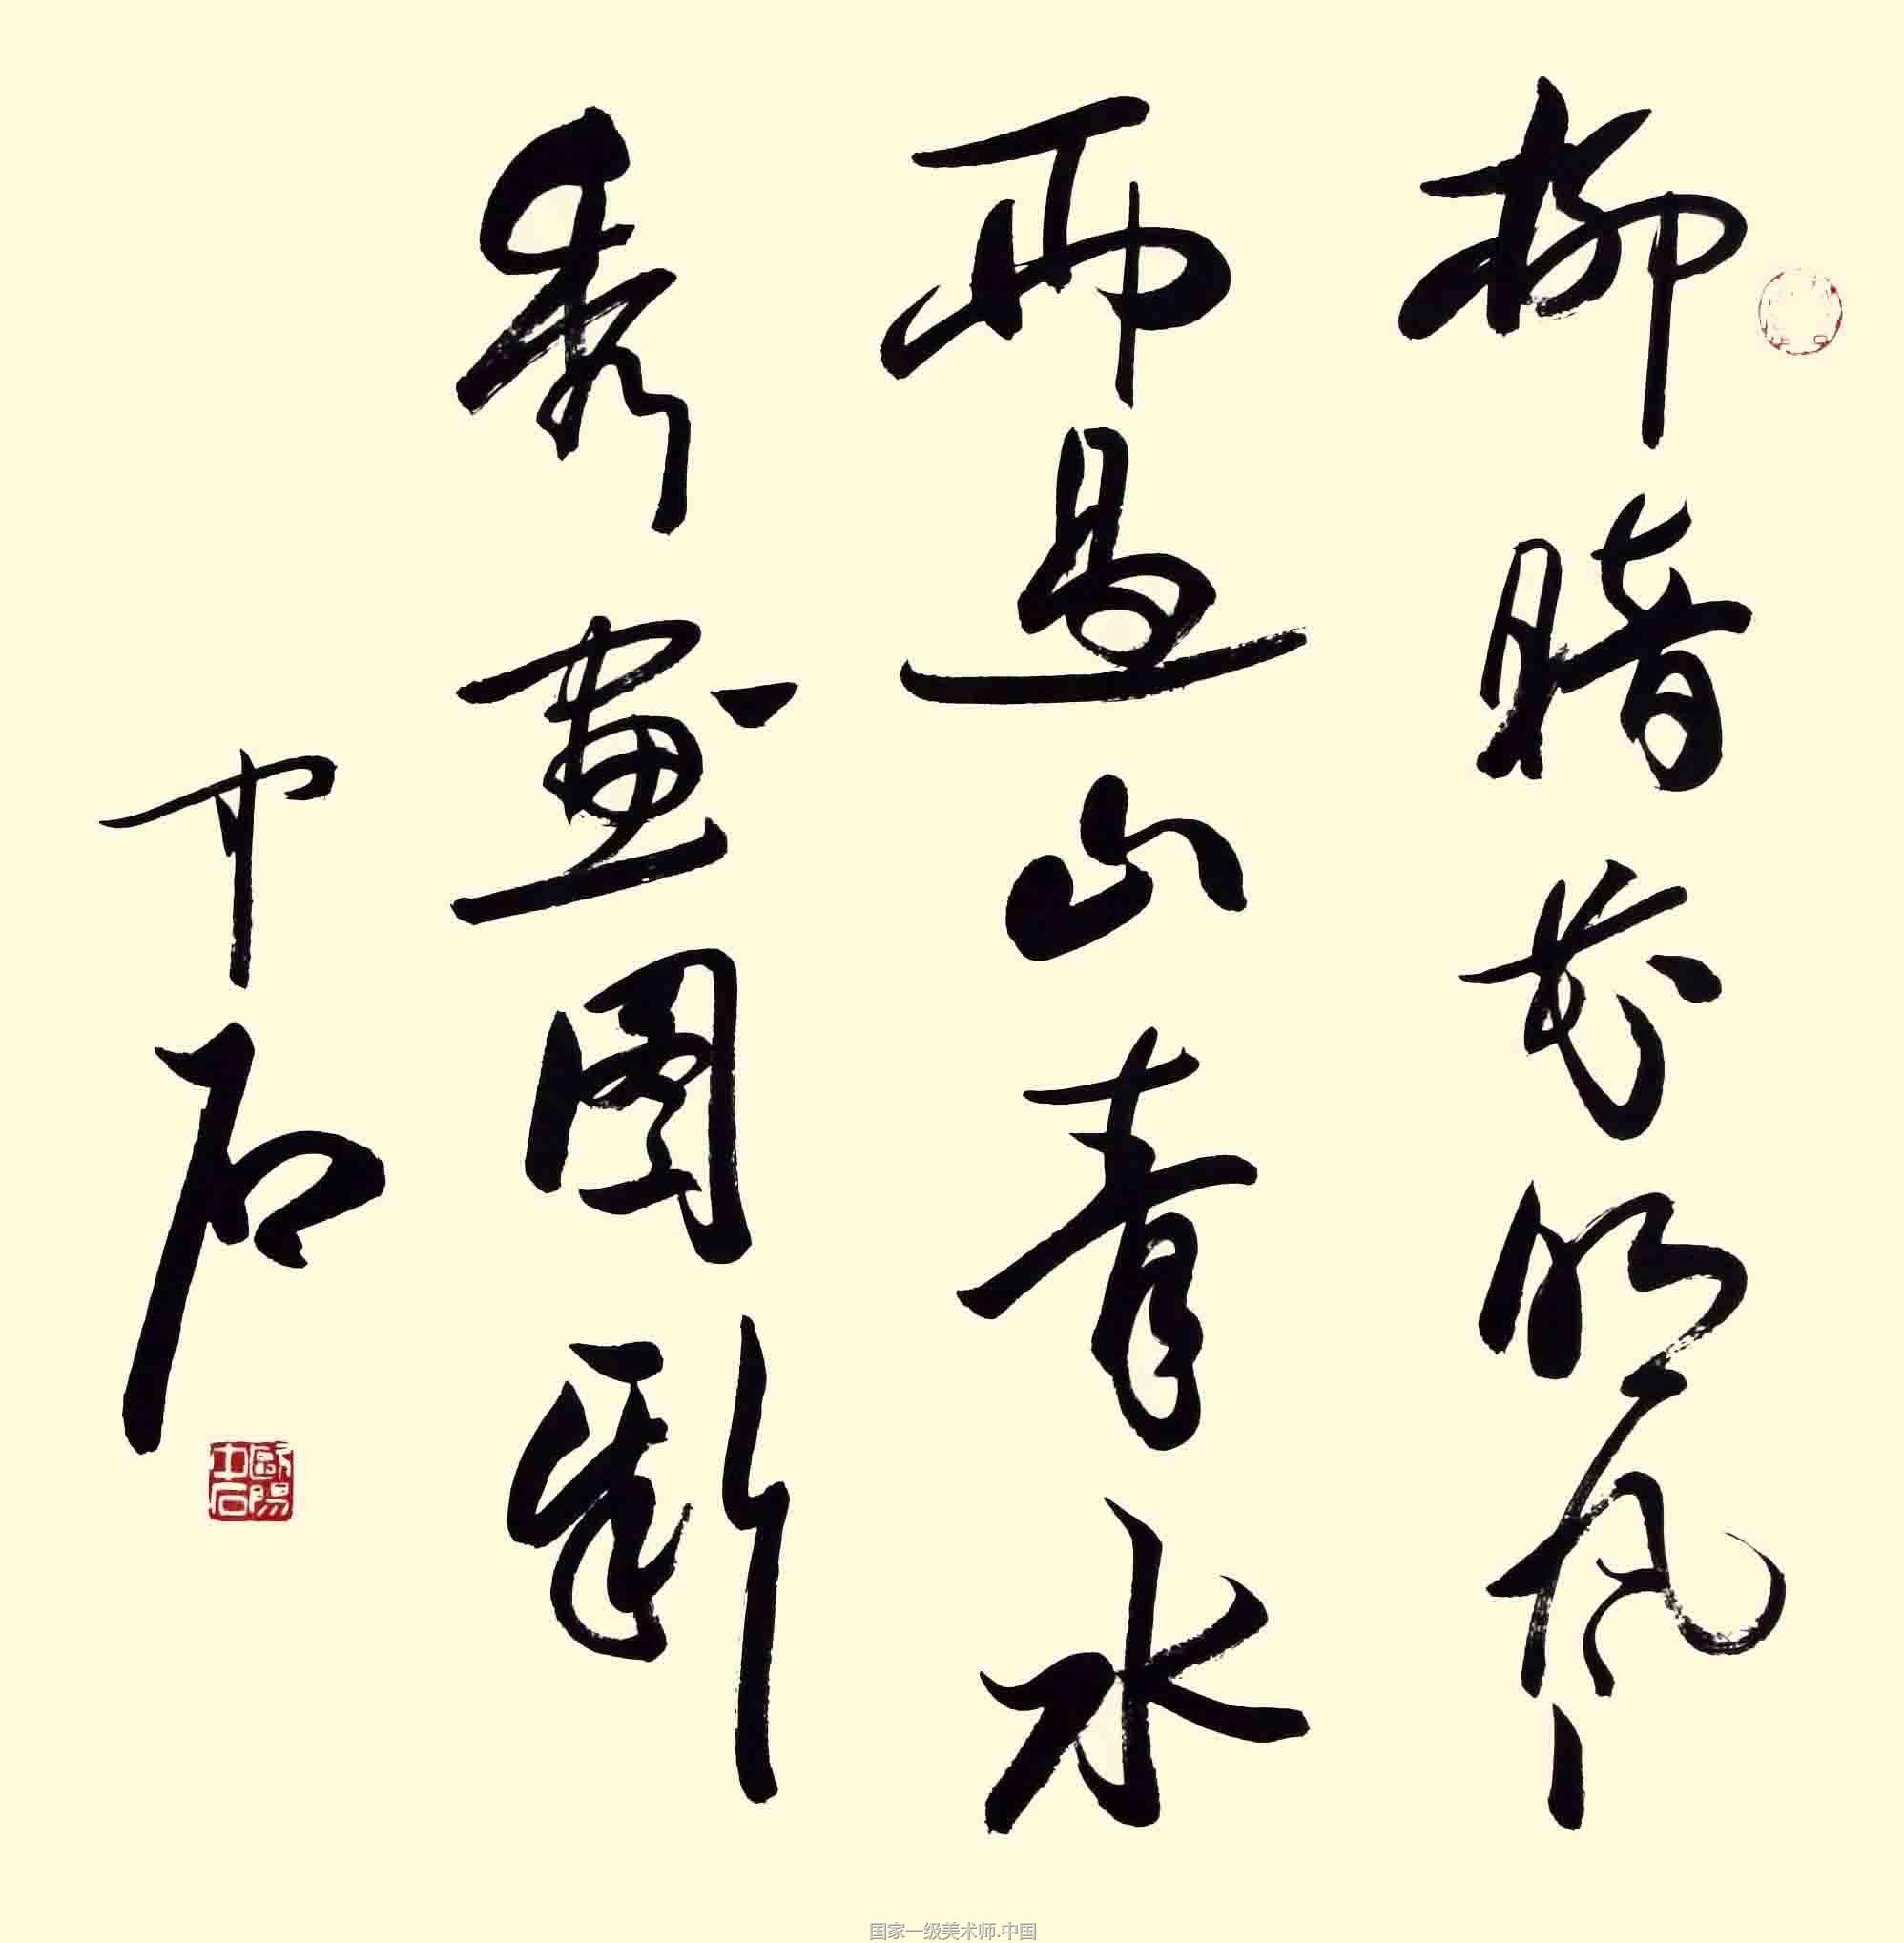 柳暗花明風
雨過山青水
秀畫圖
中石
歐陽中石
国家一级美术师.中国